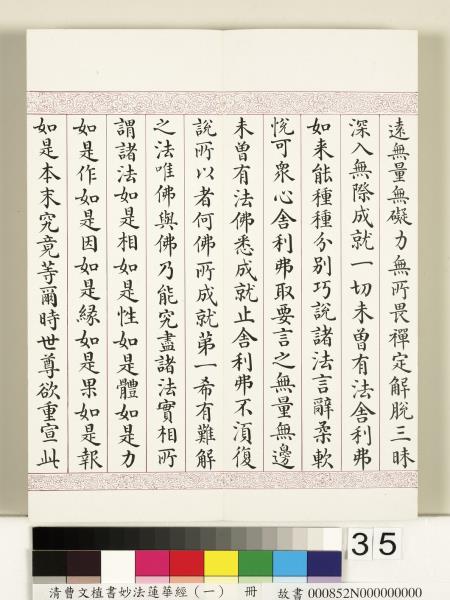 遠無量無礙力無所畏禪定解脫三昧
深入無際成就一切未曾有法舍利弗
如来能種種分別巧說諸法言辭柔軟
悅可衆心舍利弗取要言之無量無邊
未曾有法佛悉成就止舍利弗不湏復
說所以者何佛所成就苐一希有難解
之法唯佛與佛乃能究盡諸法實相所
謂諸法如是相如是性如是體如是力
如是作如是因如是緣如是果如是報
如是本末究竟等爾時世尊欲重宣此
35
清曹文植書妙法蓮華經(一) 冊 故書 000852N000000000